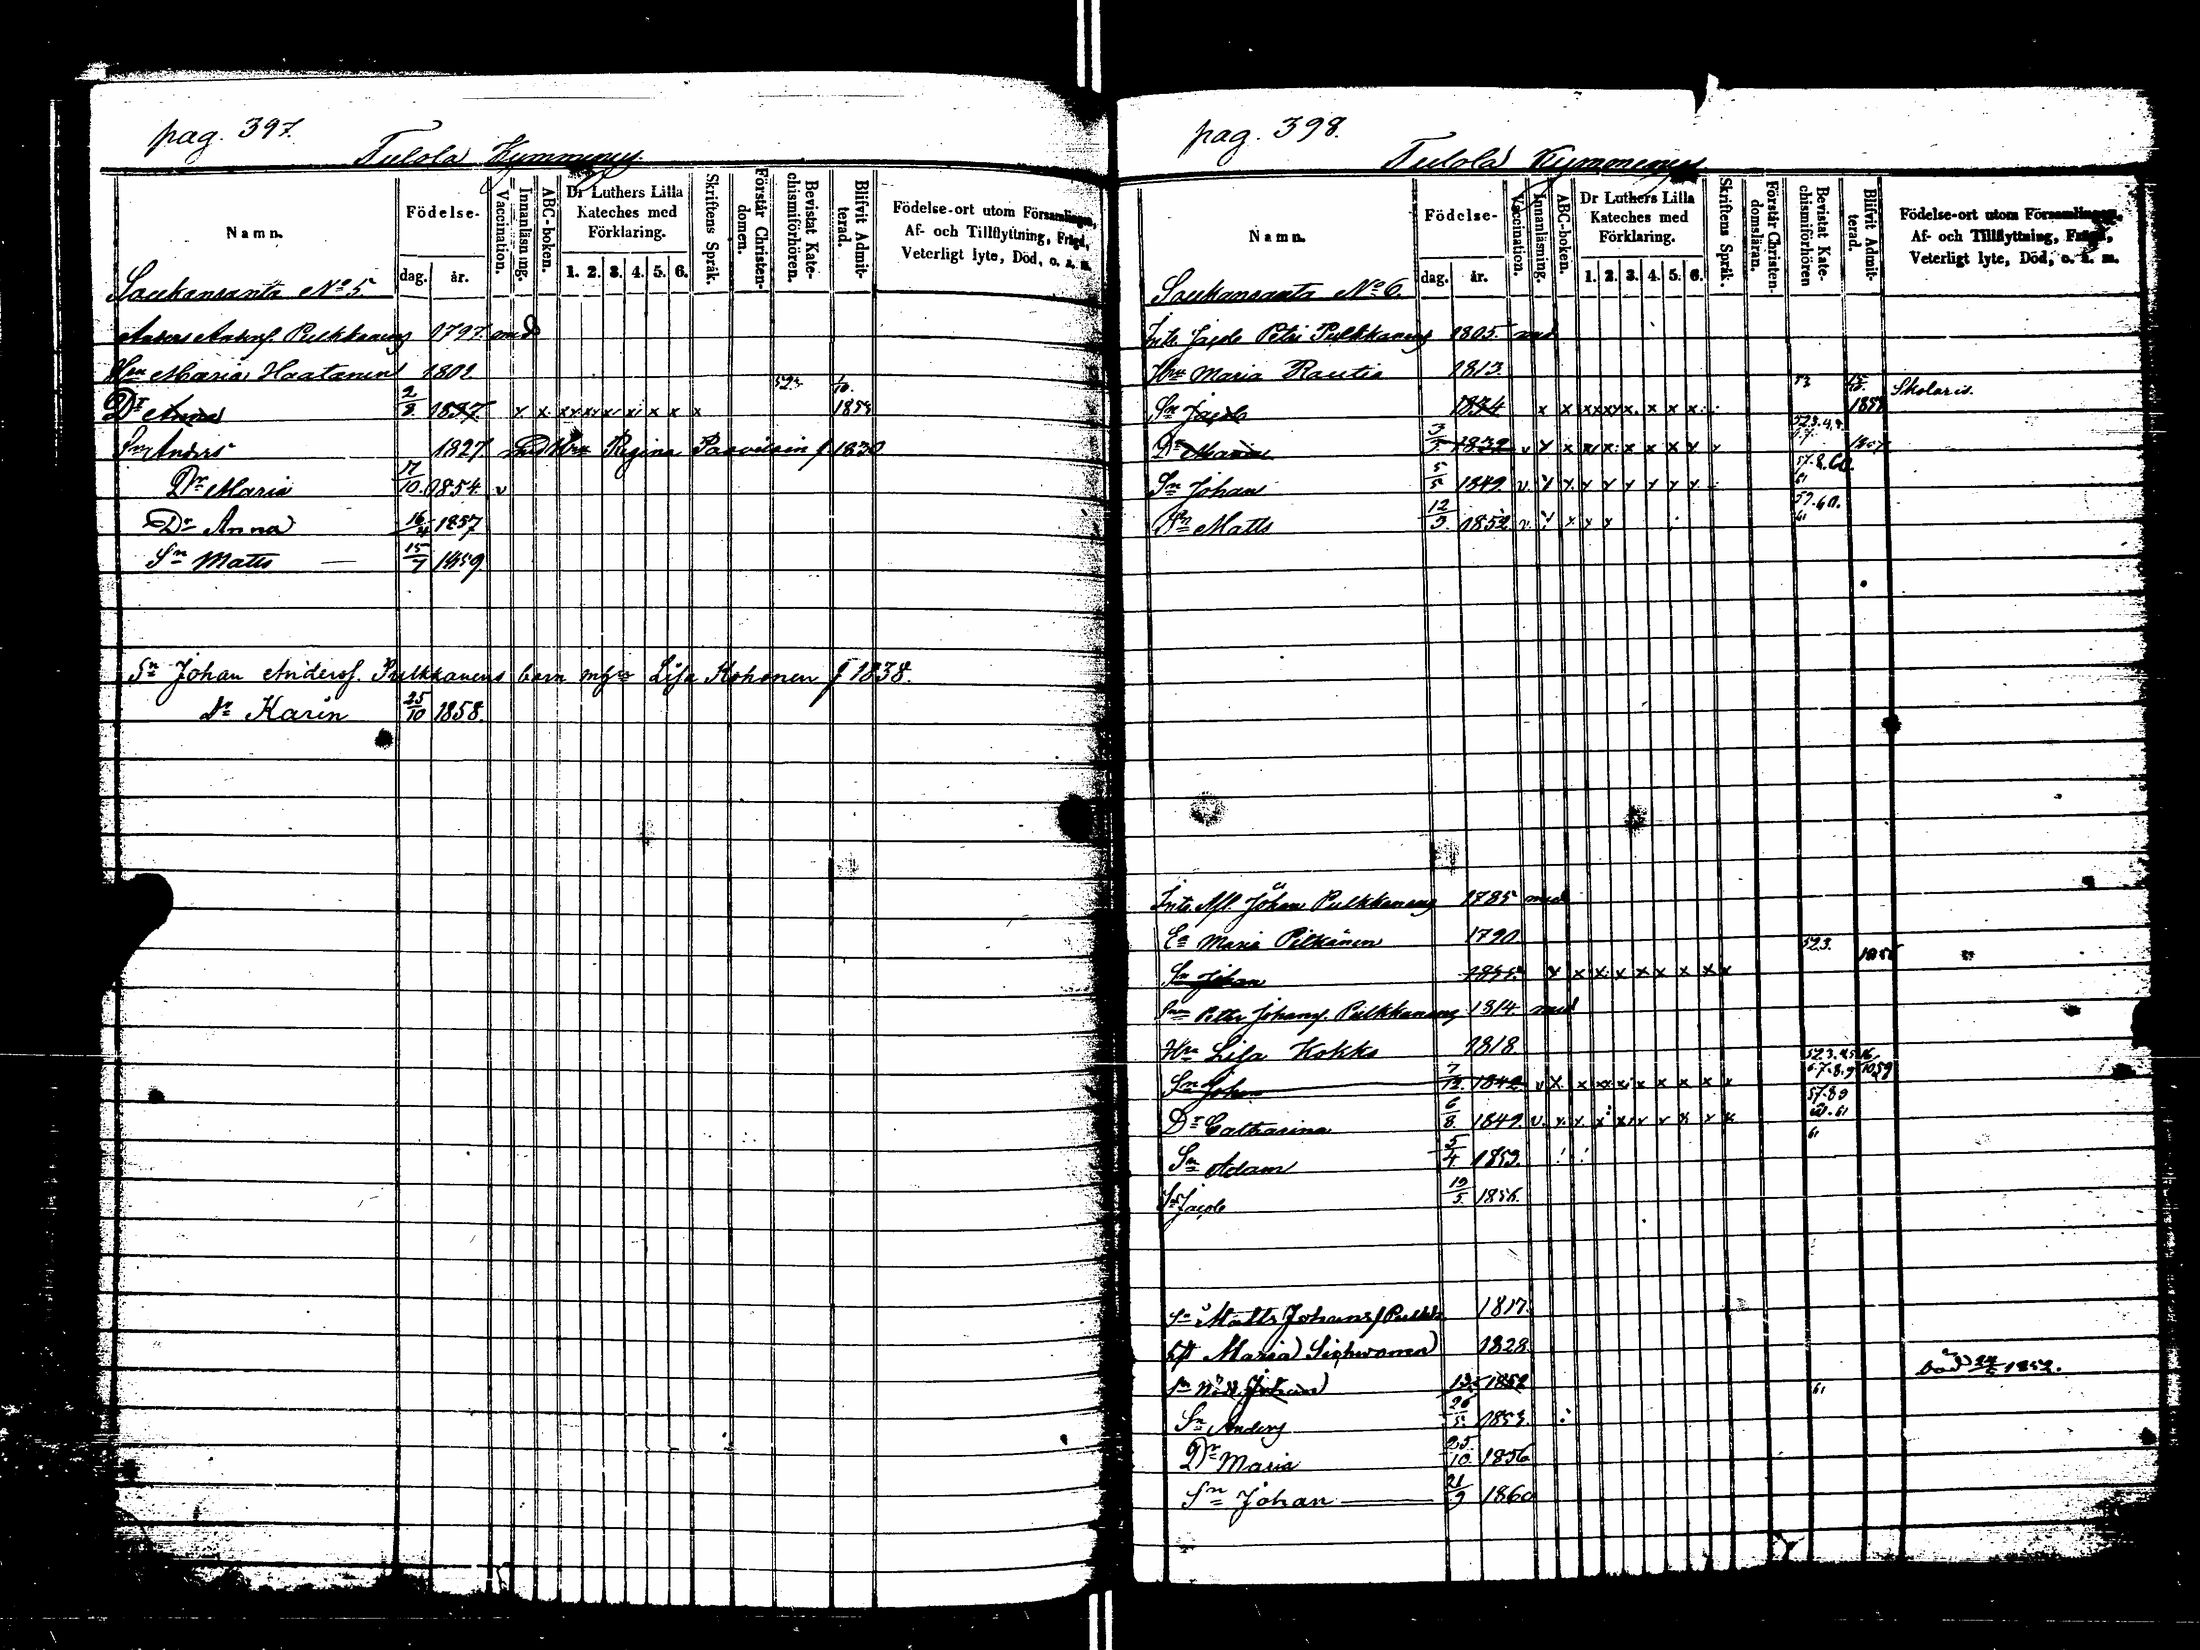 pag. 397.
Tulola Kymmeney
Namn.
Födelse-
dag. år.
Vaccination.
Innanläsning.
ABC-boken.
Dr Luthers Lilla
Kateches med
Förklaring.
1. 2. 3. 4. 5. 6.
Skriftens Språk.
Förstår Christen-
domen.
Bevistat Kate-
chismiförhören.
Blifvit Admit-
terad.
Födelse-ort utom Församlingen,
Af- och Tillflyttning, Frägd,
Veterligt lyte, Död, o. a. m.
Saukansanta No 5.
Anders Andersf. Pulkkaneng 1797. med
Hm Maria Haatanen 1802
Dr Anna 2/3 1837 x x x x x x x x 523. 1853
Sm Anders 1827 med Hru Regina Paavilain f 1830
Dr Maria 17/10 1854 v
Dr Anna 16/4 1857
Sn Matts 15/7 1859
Sn Johan Andersf. Pulkkanens barn m hro Lisa Kohonen f 1838.
Dr Karin 25/10 1858.
pag. 398.
Tulola Kymmeney
Namn.
Födelse-
dag. år.
Vaccination.
Innanläsning.
ABC-boken.
Dr Luthers Lilla
Kateches med
Förklaring.
1. 2. 3. 4. 5. 6.
Skriftens Språk.
Förstår Christen-
domsläran.
Bevistat Kate-
chismiförhören
Blifvit Admit-
terad.
Födelse-ort utom Församlingen,
Af- och Tillflyttning, Frägd,
Veterligt lyte, Död, o. a. m.
Saukansanta No 6.
Inte Jacob Petri Pulkkaneng 1805. med
Hru Maria Rautia 1813.
Sn Jacob 1834 x x x x x x x x Skolaris.
Dr Maria 1839 v x x x x x x x x
Sn Johan 5/5 1849. v. x x x x x x x 57.8.60. 61
Sn Matts 12/3 1852 v. x x x x 59.60. 61
Inte Afl. Johan Pulkkaneng 1785 med
Ea Maria Pitkänen 1790.
Sn Johan x x x x x x x x x 523.
Sm Petter Johansf. Pulkkaneng 1814 med
Hru Lisa Kokko 1818.
Sn Johan 7/12. 1842 v x x x x x x x x x
Dr Catharina 6/8 1849. v. x x x x x x x x x 57.89 60.61
Sn Adam 5/4 1853. 61
Sn Jacob 19/5 1856.
Sn Matts Johansf Pulkk 1817.
Hu Maria Sirkwonen 1828
Sn Johan 1852 död 1852.
Sn Anders 26/5 1853. 61
Dr Maria 25/10 1856
Sn Johan 21/9 1860